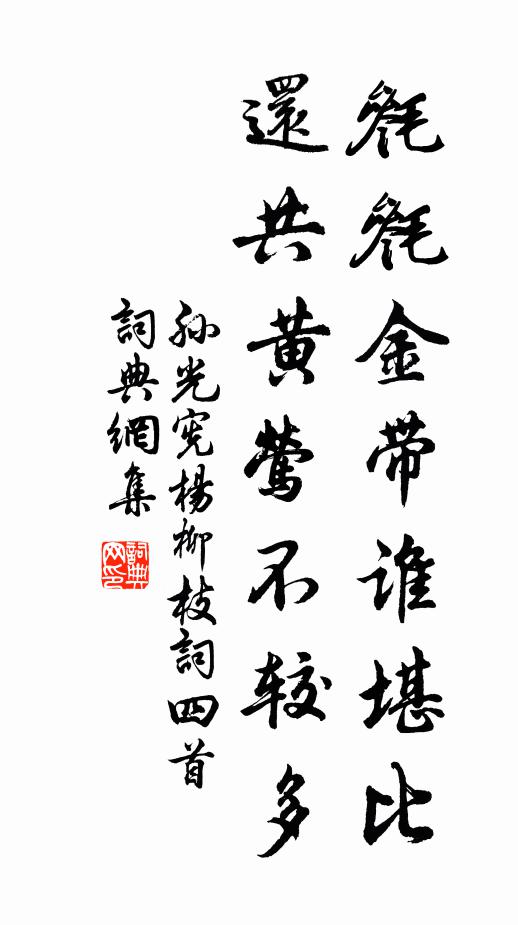 毿毿金带谁堪比
還共黄鶯不较多
孙光宪楊柳枝詞四首
詞典網集
詞典
网印